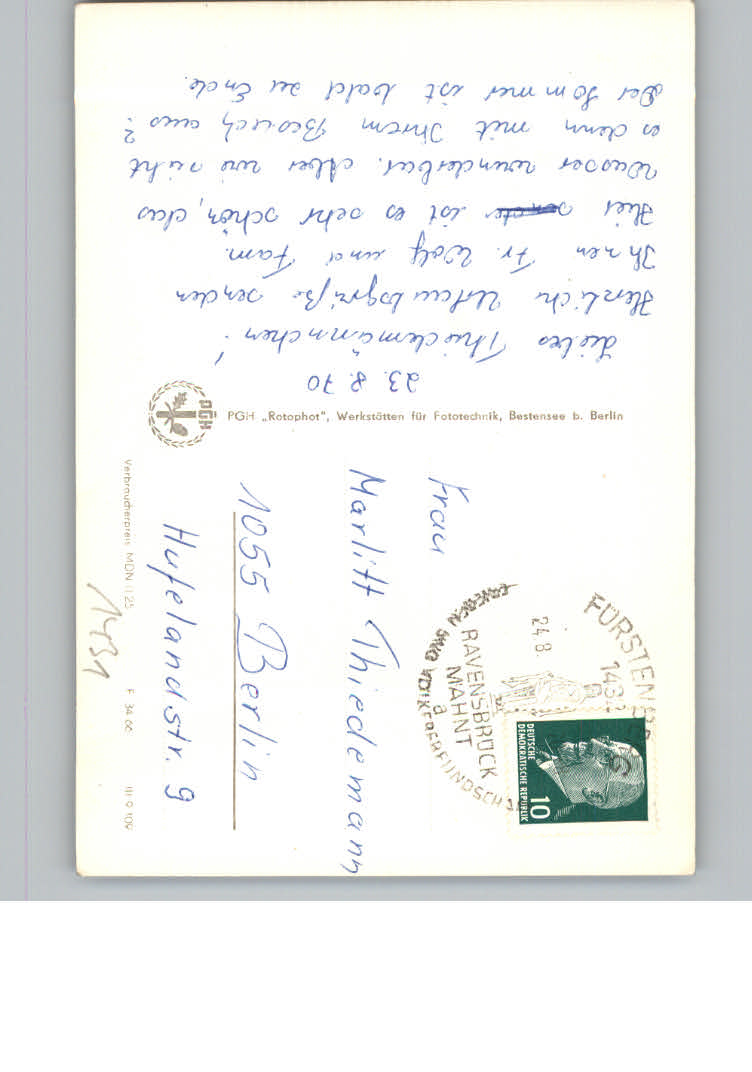 23.8.70
Liebes Thiedemännchen!
Herzliche Urlaubsgrüße senden
Ihnen Fr. Wolf und Fam.
Hier ist es sehr schön, das
Wasser wunderbar. Aber wie sieht
es denn mit Ihrem Besuch aus?
Der Sommer ist bald zu Ende.
PGH „Rotophot", Werkstätten für Fototechnik, Bestensee b. Berlin
PGH
Frau
Marlitt Thiedemann
1055 Berlin
Hufelandstr. 9
1431
Verbraucherpreis MDN 0,25
F 34 66
III 9 109
FÜRSTENBERG
1432
24.8.
RAVENSBRÜCK
MAHNT
a
DEUTSCHE
DEMOKRATISCHE REPUBLIK
10